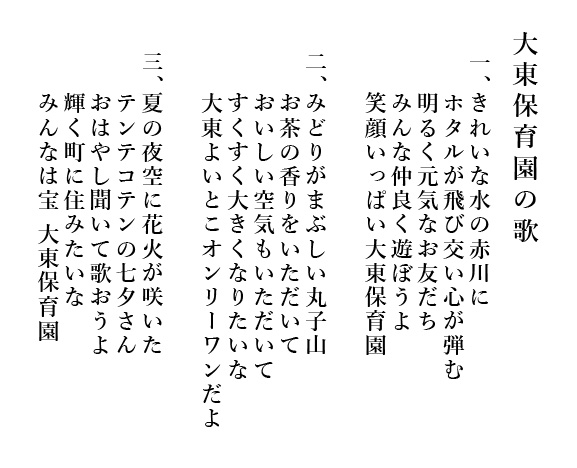 大東保育園の歌
一、きれいな水の赤川に
ホタルが飛び交い心が弾む
明るく元気なお友だち
みんな仲良く遊ぼうよ
笑顔いっぱい大東保育園
二、みどりがまぶしい丸子山
お茶の香りをいただいて
おいしい空気もいただいて
すくすく大きくなりたいな
大東よいとこオンリーワンだよ
三、夏の夜空に花火が咲いた
テンテコテンの七夕さん
おはやし聞いて歌おうよ
輝く町に住みたいな
みんなは宝 大東保育園